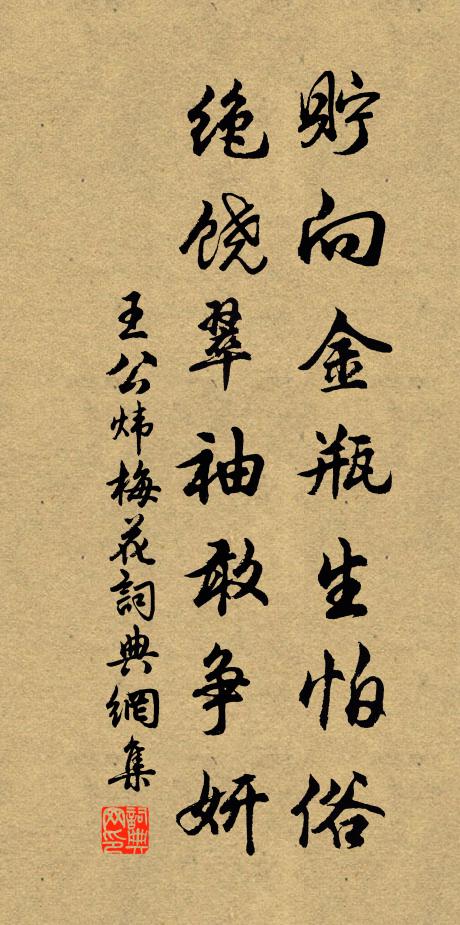 贮向金瓶生怕俗
绝饶翠袖敢争妍
王公炜梅花词典網集
詞典网印